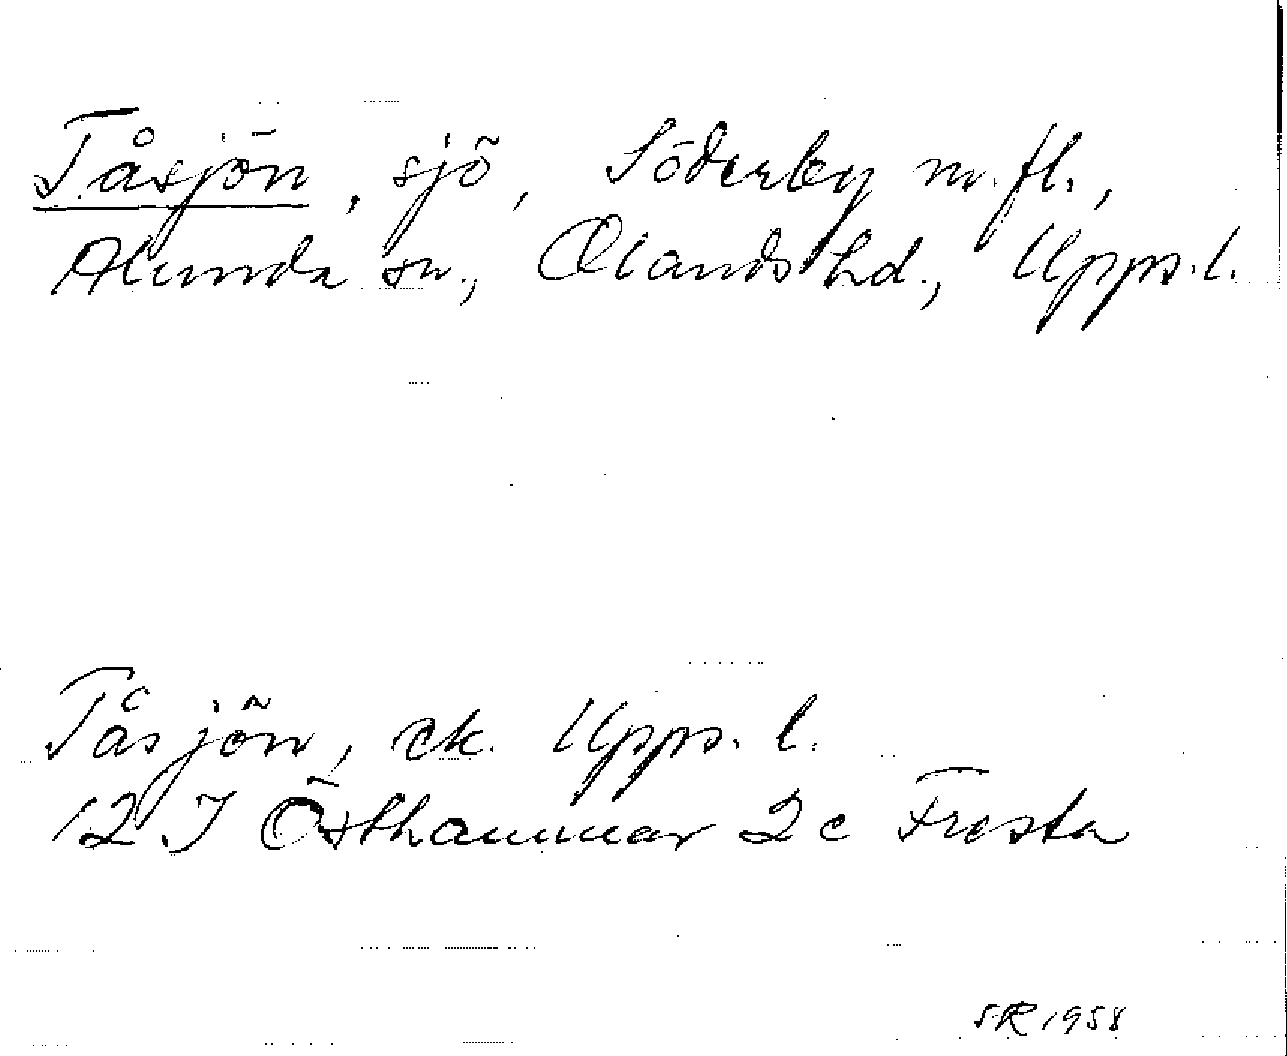 Tåsjön, sjö, Söderby m.fl.,
Alunda sn., Olands hd., Upps.l.
Tåsjön, ek. Upps. l.
12 I Östhammar 2 c Fresta
SR 1958